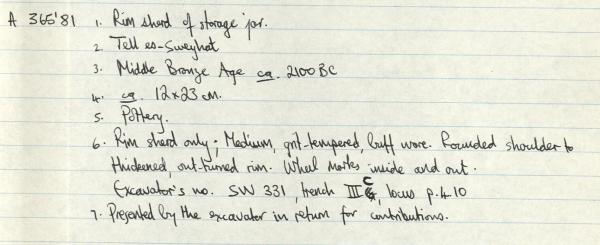 A 365'81 1. Rim sherd of storage jar.
2. Tell es-Sweyhat
3. Middle Bronze Age ca. 2100 BC
4. ca. 12 x 23 cm.
5. Pottery.
6. Rim sherd only; Medium, grit-tempered, buff ware. Rounded shoulder to
thickened, out-turned rim. Wheel marks inside and out.
Excavator's no. SW 331, trench III C, locus p. 4.10
7. Presented by the excavator in return for contributions.